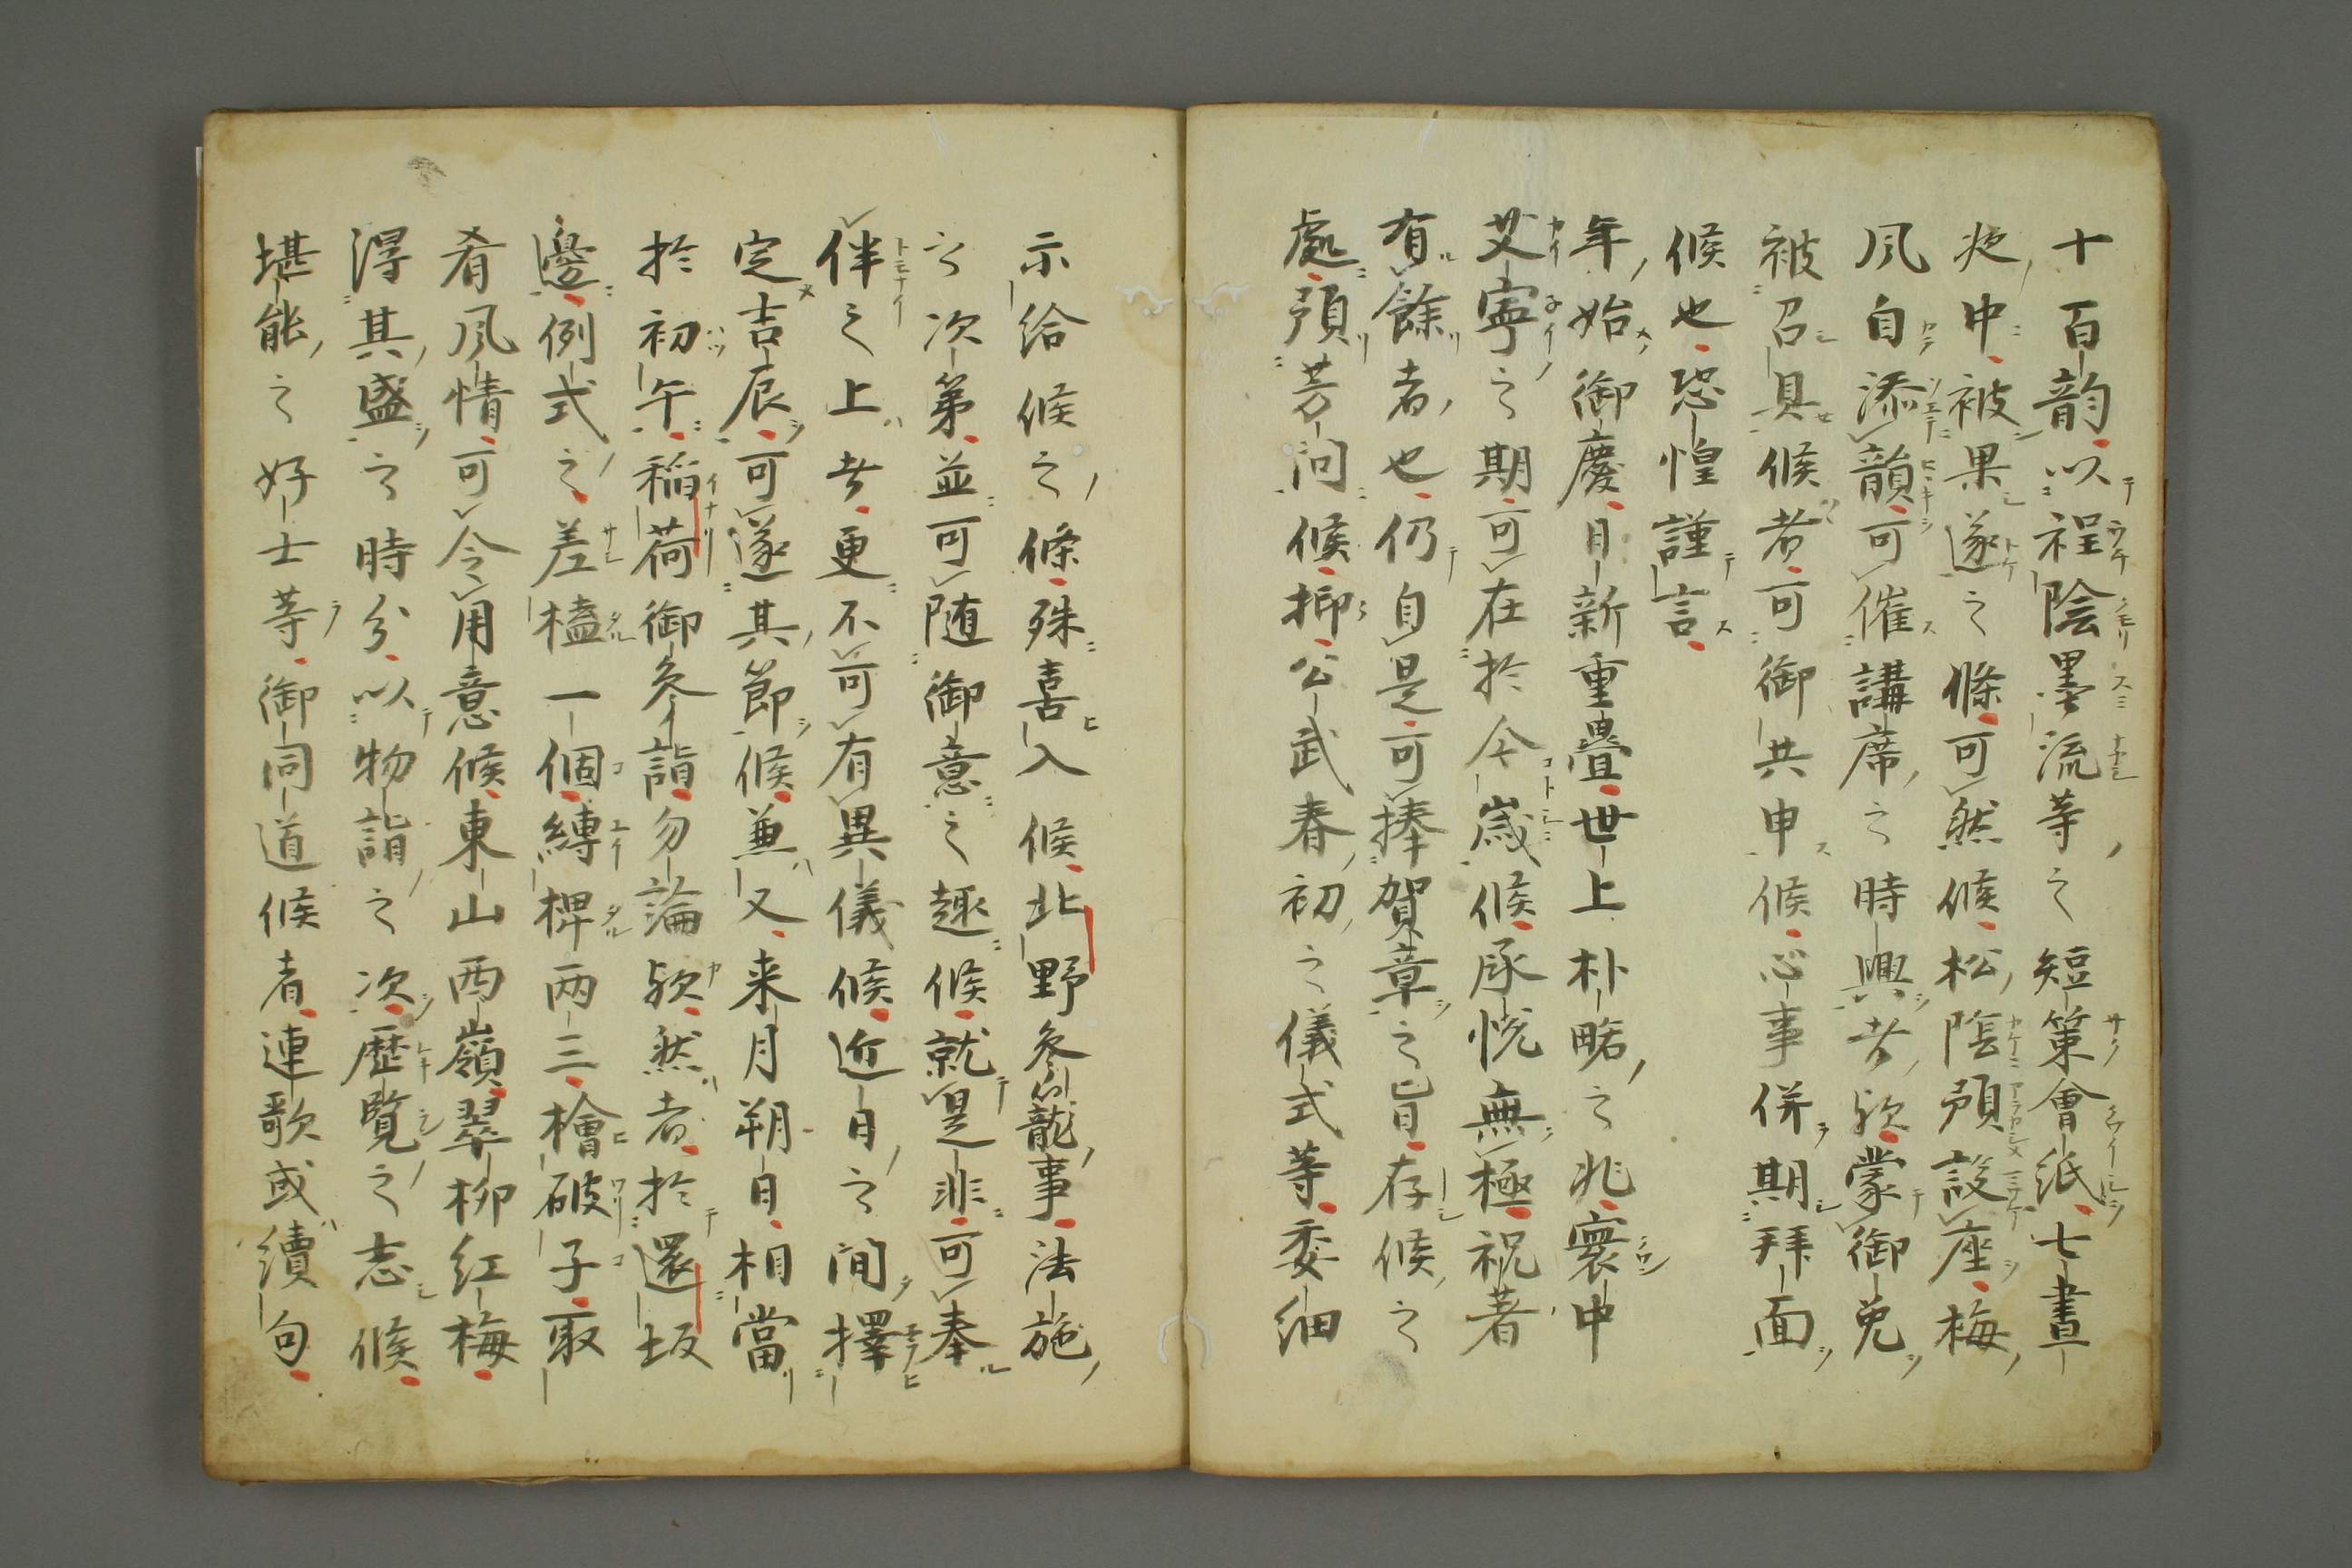 十百韵以程陰墨流等之短策會紙七晝
夜中被果遂之條可然候松陰預設座梅
風自添韻可催講席之時興者欤蒙御免
被召具候者可御共申候心事併期拜面
候也恐惶謹言
年始御慶日新重疊世上朴略之兆寰中
艾寧之期可在於今歳候承悦無極祝著
有餘者也仍自是可捧賀章之旨存候之
處預芳问候抑公武春初之儀式等委細
示給候之條殊喜入候北野参籠事法施
之次第並可随御意之趣候就是非可奉
伴之上者更不可有異儀候近日之间擇
定吉辰可遂其節候兼又来月朔日相當
於初午稲荷御参詣勿論欤然者於還坂
邊例式之差榼一個縛椑两三檜破子取
肴風情可令用意候東山西嶺翠柳紅梅
得其盛之時分以物詣之次歴覧之志候
堪能之好士等御同道候者連歌或續句